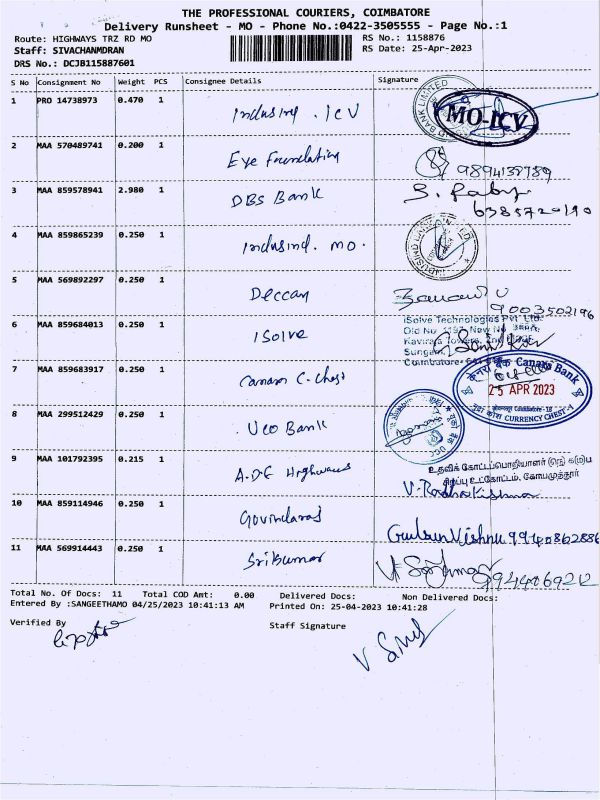 THE PROFESSIONAL COURIERS, COIMBATORE
Delivery Runsheet - MO - Phone No.:0422-3505555 - Page No.:1
Route: HIGHWAYS TRZ RD MO
RS No.: 1158876
Staff: SIVACHANMDRAN
RS Date: 25-Apr-2023
DRS No.: DCJB115887601
S No Consignment No Weight PCS Consignee Details Signature
1 PRO 14738973 0.470 1 Indusind . ICV MO-ICV
2 MAA 570489741 0.200 1 Eye Foundation
3 MAA 859578941 2.980 1 DBS Bank
6385720190
4 MAA 859865239 0.250 1 Indusind. MO.
5 MAA 569892297 0.250 1 Deccan
9003502196
6 MAA 859684013 0.250 1 iSolve
iSolve Technologies Pvt. Ltd.
Coimbatore
7 MAA 859683917 0.250 1 Canara C. Chest
केनरा बैंक Canara Bank
25 APR 2023
CURRENCY CHEST
8 MAA 299512429 0.250 1 . UCO Bank
9 MAA 101792395 0.215 1 A.D.E Highways
உதவிக் கோட்டப்பொறியாளர் (நெ) க(ம)ப
சிறப்பு உட்கோட்டம், கோயமுத்தூர்
V. Radhakrishnan
10 MAA 859114946 0.250 1 Govindaraj
Vishnu 9940862886
11 MAA 569914443 0.250 1 Srikumar
Total No. Of Docs: 11 Total COD Amt: 0.00 Delivered Docs: Non Delivered Docs:
Entered By :SANGEETHAMO 04/25/2023 10:41:13 AM Printed On: 25-04-2023 10:41:28
Verified By
Staff Signature